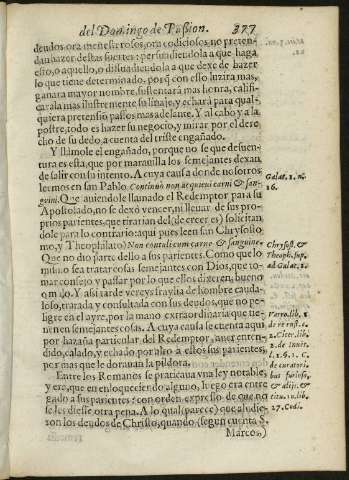 del Domingo de Passion. 377
deudos, ora menesterosos, ora codiciosos no preten-
dan hazer destas suertes: persuadiendola a que haga
esto, o aquello, o dissuadiendola a que dexe de hazer
lo que tiene determinado, porq̃ con ello luzira mas,
ganara mayor nombre, sustentará mas honra, califi-
carala mas ilustremente su linaje, y echará para qual-
quiera pretensiõ passos mas adelante. Y al cabo y a la
postre, todo es hazer su negocio, y mirar por el dere-
cho de su dedo, a cuenta del triste engañado.
Y llamole el engañado, porque no se que desuen-
tura es esta, que por marauilla los semejantes dexan
de salir con su intento. A cuya causa donde nosotros
leemos en san Pablo. Continuò non acquieui carni & san-
guini. Que auiendole llamado el Redemptor para su
Apostolado, no se dexò vencer, ni lleuar de sus pro-
prios parientes, que tirarian del (de creer es) solicitan
dole para lo contrario: aqui pues leen san Chrysosto
mo, y Theophilato) Non contuli cum carne & sanguine.
Que no dio parte dello a sus parientes. Como que lo
mismo sea tratar cosas semejantes con Dios, que to-
mar consejo y passar por lo que ellos dizeren, bueno
o malo. Y assi tarde vereys fraylia de hombre cauda-
loso, tratada y consultada con sus deudos, que no pe-
ligre en el ayre, por la mano extraordinaria que tie-
nen en semejantes cosas. A cuya causa se cuenta aqui
por hazaña particular del Redemptor, auer enten-
dido, calado, y echado por alto a ellos sus parientes,
por mas que le dorauan la pildora.
Entre los Romanos se praticaua vna ley notable,
y era, que en enloqueciendo alguno, luego era entre
gado a sus parientes: con orden expresso de que no
se les diesse otra pena. A lo qual (parece) que aludie-
ron los deudos de Christo, quando (segun cuenta S.
Marcos,)
Galat. 1. nu.
16.
Chrysost. &
Theoph. sup.
ad Galat. 1.
Varro. lib. 1
de re rust. c.
2. Cicer. lib.
2. de inuẽt.
l. 1. & 1. C.
de curatori.
bus furioso,
& adijt. &
titu. 10. lib.
27. Codi.